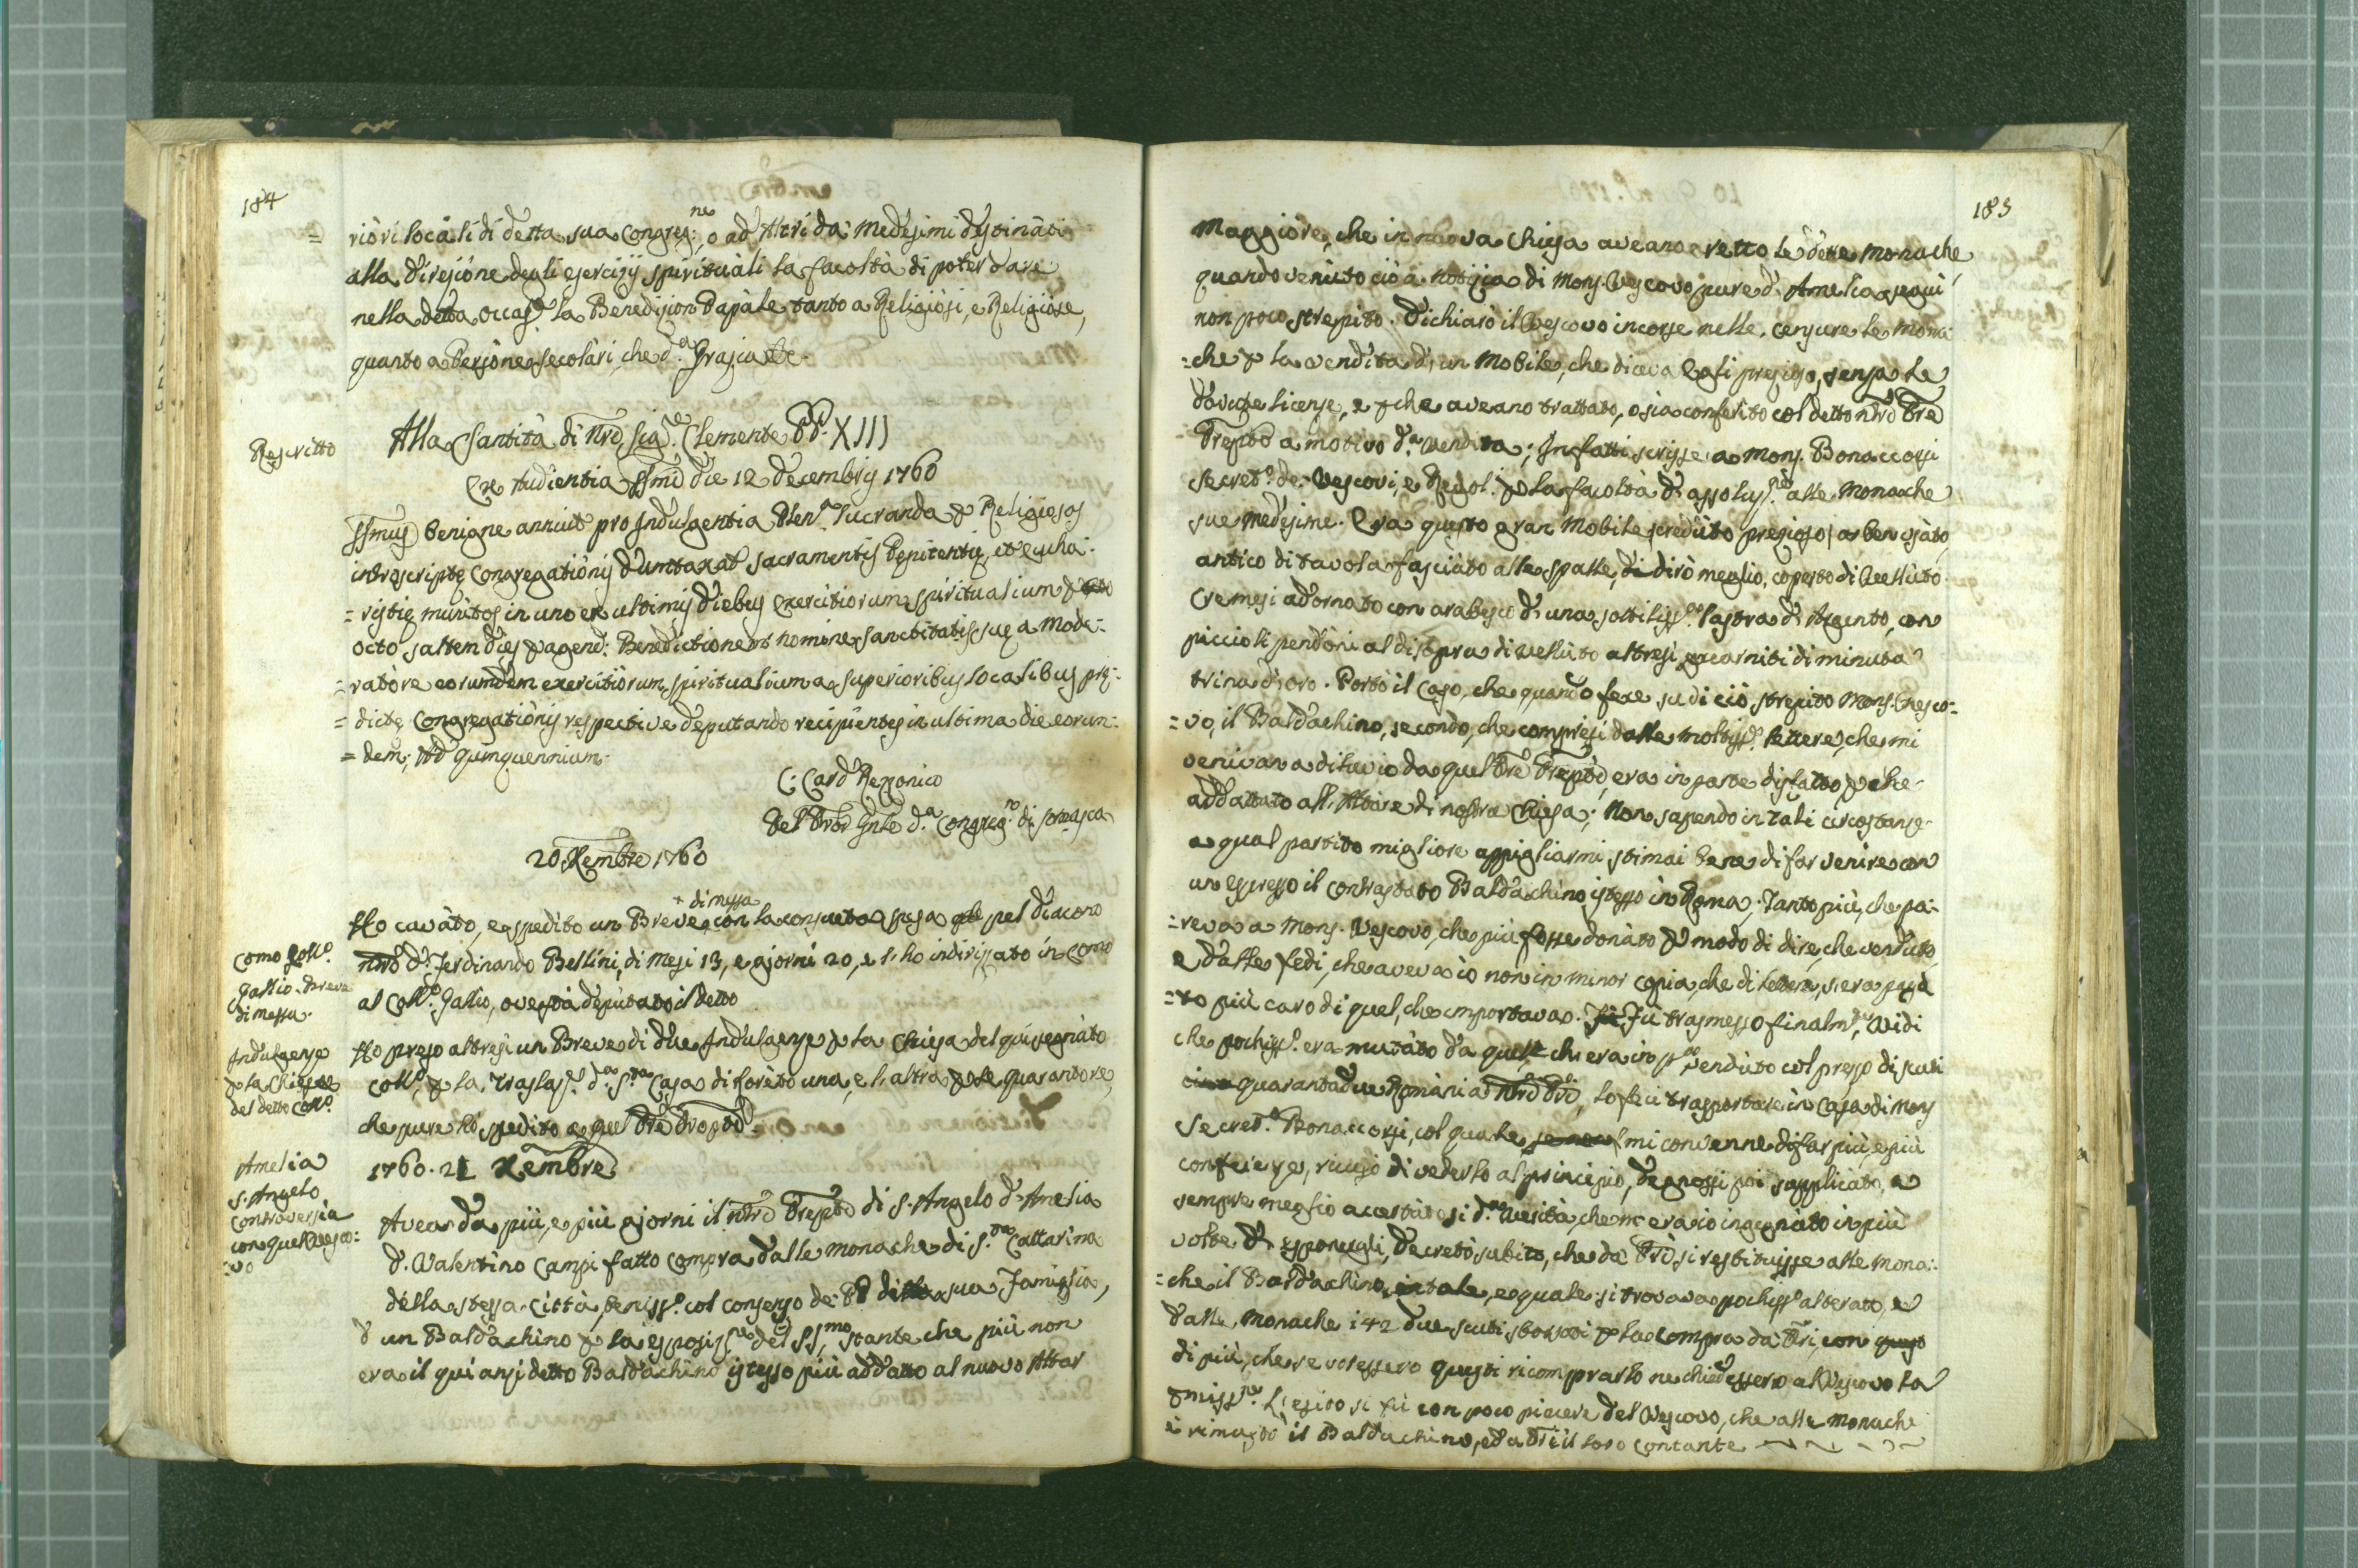 184
= riori locali di detta sua Congreg:ne, o ad Altri da' medesimi destinati
alla direzione degli esercizij spirituali la facoltà di poter dare
nella detta occas.e la Benedizion Papale tanto a Religiosi, e Religiose,
quanto a Persone secolari, che d.a Grazia etc.
Rescritto
Alla Santità di Nrõ Sig.re Clemente PP. XIII
Ex Audientia SSmi die 12 Decembris 1760
SSmus benigne annuit pro Indulgentia Plen.a lucranda p Religiosos
introscriptę Congregationis dumtaxat sacramentis Pęnitentię, et eucha:
= ristię munitos in uno ex ultimis diebus exercitiorum spiritualium p
octo saltem dies pagend: Benedictionem nomine Sanctitatis suę a Mode:
= ratore eorumdem exercitiorum spiritualium a superioribus localibus prę:
= dictę Congregationis respective deputando recipientes in ultima die eorum:
= dem; Ad quinquennium.
C: Card Rezzonico
Pel Prõr Gnle d.a Congreg.ne di Somasca
20 Xembre 1760
+ di messa
Ho cavato, e spedito un Breve + con la consueta spesa pel diacono
Como Coll.o
Gallio. Breve
di messa.
nrõ d. Ferdinando Bellini, di mesi 13, e giorni 20, e l'ho indirizzato in Como
al Coll.o Gallio, ove stà deputato il detto
Indulgenze
p la Chiesa
del detto Coll.o
Ho preso altresi un Breve di due Indulgenze p la Chiesa del quì segnato
Coll.o, p la Traslaz.e d.a S.ta Casa di Loreto una, e l'altra p le quarantore,
che pure hò spedito a quel Prẽ Propto.
1760. 21 Xembre
Amelia
S. Angelo
controversia
con quel Vesco:
= vo
Avea da più, e più giorni il nrõ Prẽpto di S. Angelo d'Amelia
d. Valentino Campi fatto compra dalle monache di S.ta Cattarina
della stessa Città, beniss.o col consenso de' PP di sua Famiglia,
d'un Baldachino p la esposiz.ne del SS.mo, stante che più non
era il quì anzidetto Baldachino istesso più addatto al nuovo Altar
185
Maggiore, che in nuova Chiesa aveano eretto le dette Monache,
quando venuto ciò a notizia di Mons. Vescovo pure d'Amelia seguì
non poco strepito. Dichiarò il Vescovo incorse nelle censure le Mona:
= che p la vendita d'un Mobile, che diceva Egli prezioso, senza le
dovute licenze, e pche aveano trattato, o sia conferito col detto nrõ Prẽ
Prẽpto a motivo d.a vendita; Infatti scrisse a Mons. Bonaccorsi
Secret.o de' Vescovi, e Regol. p la facoltà d'assoluz.ne alle Monache
sue medesime. Era questo gran Mobile creduto prezioso, a ben usato,
antico di tavola fasciato alle spalle, dirò meglio, coperto di Velluto
Cremesi adornato con arabesco d'una sottiliss.a lastra d'Argento, con
piccioli pendoni al di sopra di velluto altresi guarniti di minuta
trina d'oro. Portò il Caso, che quando fece su di ciò strepito Mons. Vesco:
= vo, il Baldachino, secondo, che compresi dalle moltiss.e lettere, che mi
venivan a diluvio da quel Prẽ Prẽpto, era in parte disfatto, pche
addattato all'Altare di nostra Chiesa; Non sapendo in tali circostanze
a qual partito migliore appigliarmi stimai bene di far venire con
un espresso il contrastato Baldachino istesso in Roma; Tanto più, che pa:
= reva a Mons. Vescovo, che più fosse donato p modo di dire, che venduto,
e dalle fedi, che aveva io non in minor copia, che di lettere, s'era paga
= to più caro di quel, che importava. Fu trasmesso finalm.te, Vidi
che pochiss.o era mutato da quel chi era in p.o, venduto col prezzo di scudi
quarantadue Romani a' nrĩ PP., lo feci trasportare in Casa di Mons
Secret.o Bonaccorsi, col quale mi convenne di far più, e più
conferenze, ricusò di vederlo al principio, degnossi poi supplicato, a
sempre meglio accertarsi d.a verità, che m'era io ingegniato in più
volte di esponergli, decretò subito, che da' PP si restituisse alle Mona:
= che il Baldachino, e tale, e quale si trovava pochiss.o alterato, e
dalle Monache i 42 due scudi sborsati p la compra da' PP, con
di più, che se volessero questi ricomprarlo ne chiedessero al Vescovo la
pmiss.ne. L'esito si fù con poco piacere del Vescovo, che alle Monache
è rimasto il Baldachino, ed a' PP il loro contante